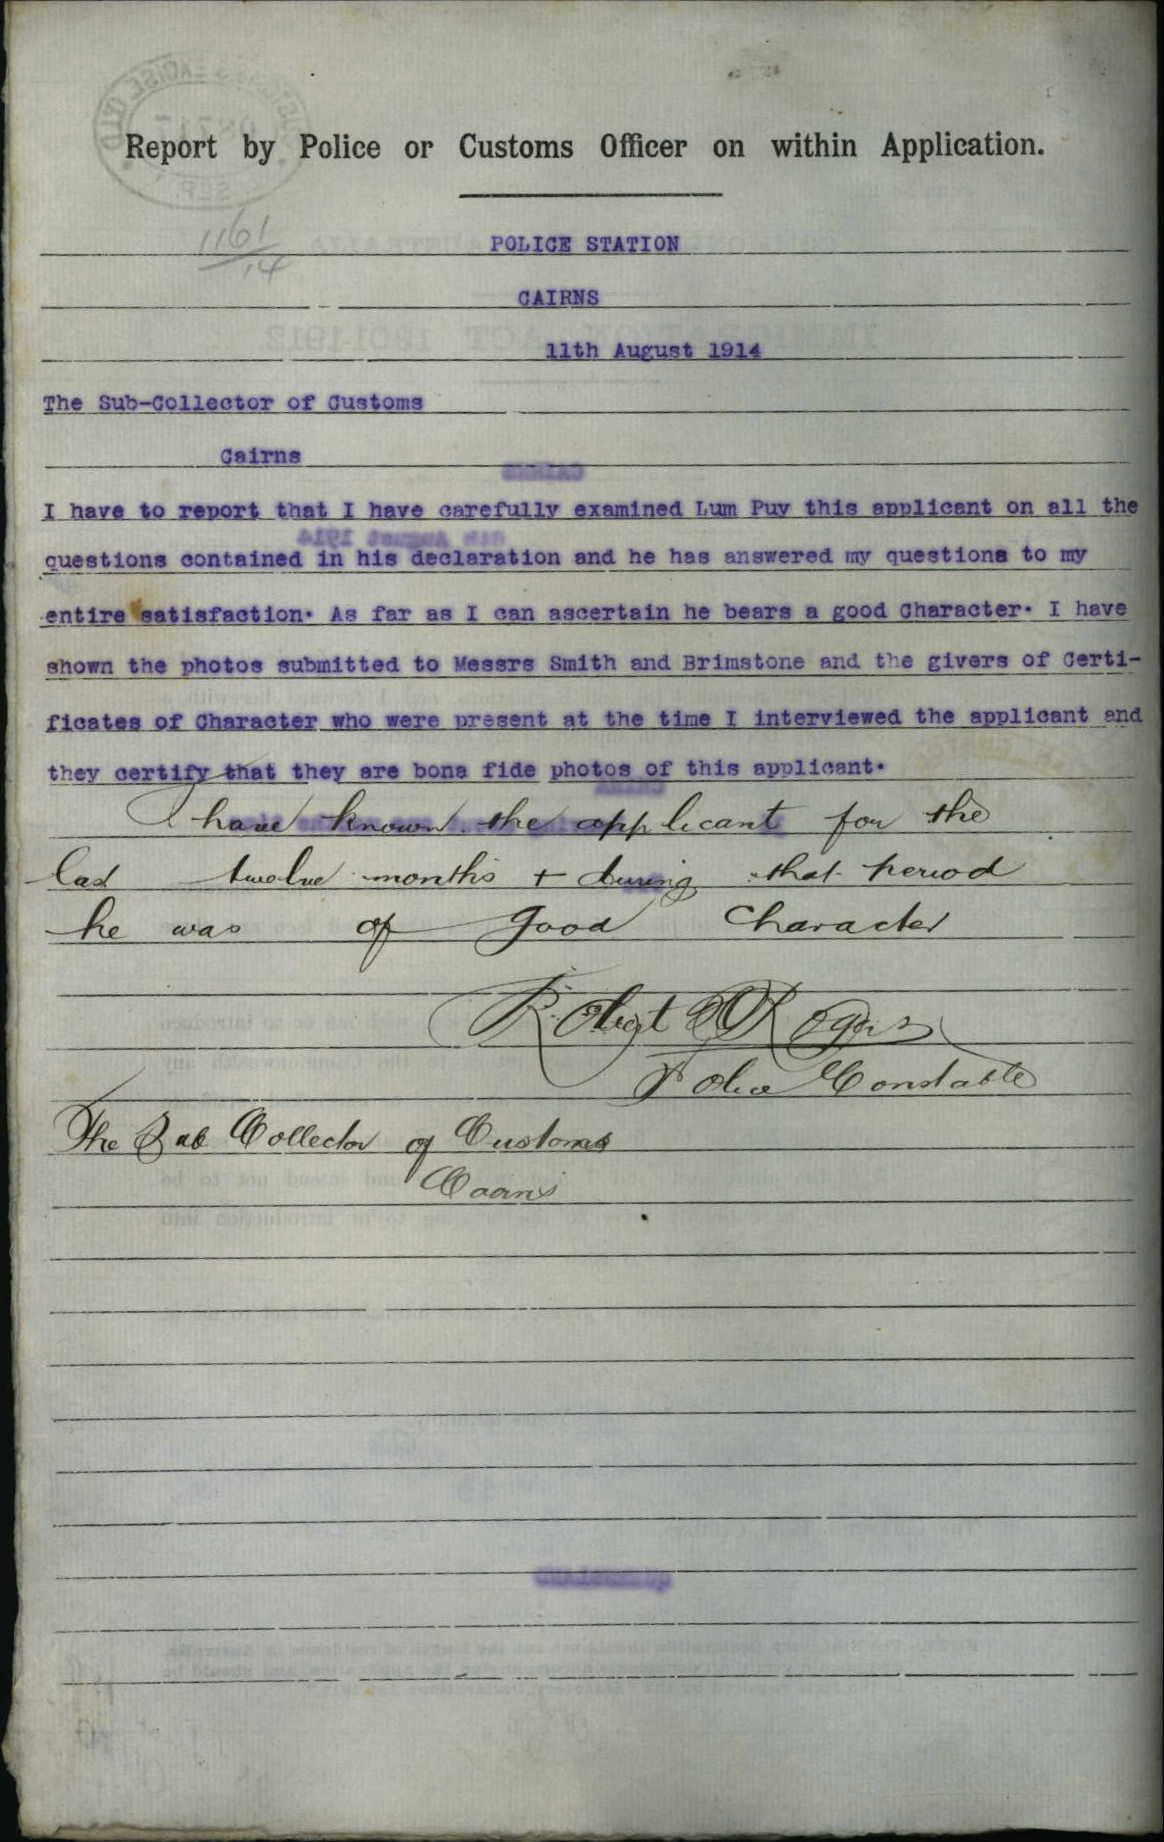 Report by Police or Customs Officer on within Application.
1161/14
POLICE STATION
CAIRNS
11th August 1914
The Sub-Collector of Customs
Cairns
I have to report that I have carefully examined Lum Puy this applicant on all the
questions contained in his declaration and he has answered my questions to my
entire satisfaction. As far as I can ascertain he bears a good Character. I have
shown the photos submitted to Messrs Smith and Brimstone and the givers of Certi-
ficates of Character who were present at the time I interviewed the applicant and
they certify that they are bona fide photos of this applicant.
I have known the applicant for the
last twelve months + during that period
he was of good Character
Robert Rogers
Police Constable
The Sub Collector of Customs
Cairns